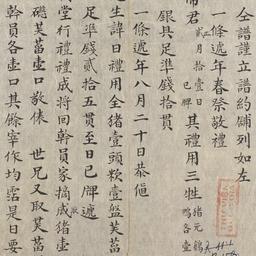 仝譜謹立譜約鋪列如左
一條遞年春祭敬禮
帝君 貳月拾壹日巳牌 其禮用三牲
銀具足準錢拾貫
一條遞年八月二十日恭值
生諱日禮用全猪壹頭炊壹盤芙蒥
足準錢貳拾五貫至日巳牌遞
堂行禮禮成將回幹員家摘成猪壺
磯芙蒥壹口敬俵 世兄又取芙蒥
幹員各壹口其餘宰作均霑是日要